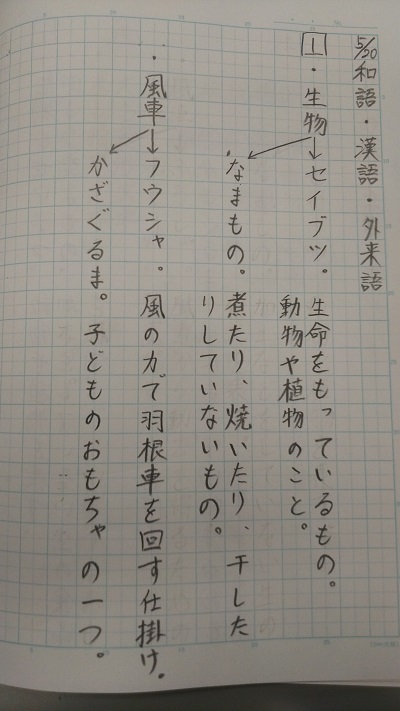 5/20 和語・漢語・外来語
1・生物→セイブツ。生命をもっているもの。
動物や植物のこと。
なまもの。煮たり、焼いたり、干した
りしていないもの。
・風車→フウシャ。風の力で羽根車を回す仕掛け。
かざぐるま。子どものおもちゃの一つ。